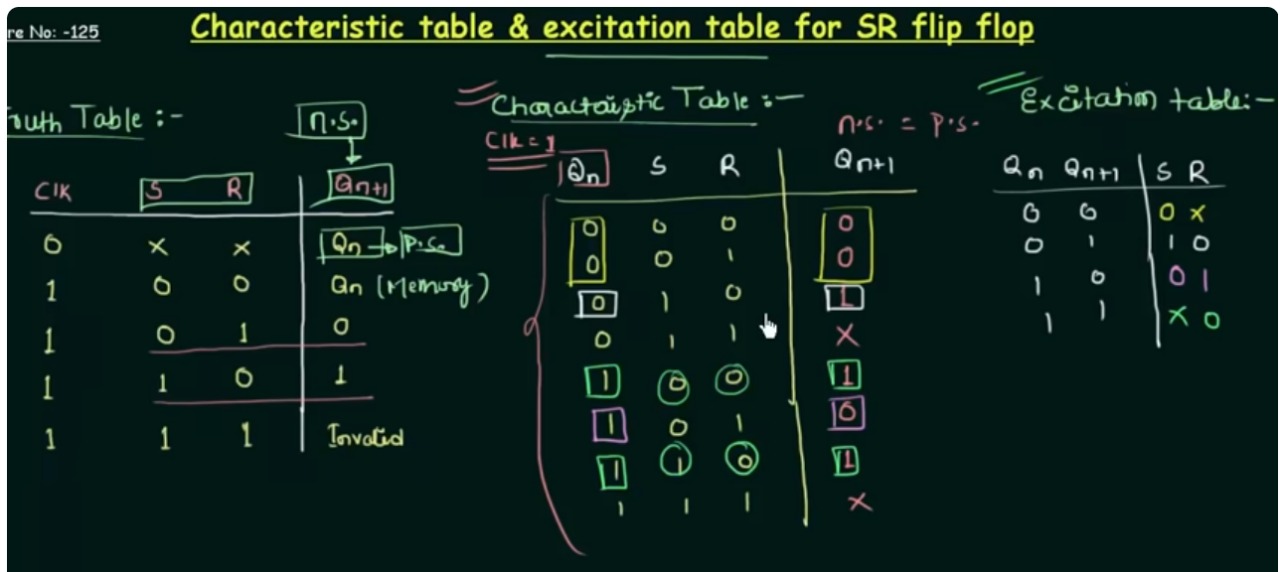 re No: -125
Characteristic table & excitation table for SR flip flop
ruth Table :-
n.s.
Clk S R Qn+1
0 x x Qn → p.s.
1 0 0 Qn (Memory)
1 0 1 0
1 1 0 1
1 1 1 Invalid
Charactaiptic Table :-
Clk = 1
n.s. = p.s.
Qn S R Qn+1
0 0 0 0
0 0 1 0
0 1 0 1
0 1 1 x
1 0 0 1
1 0 1 0
1 1 0 1
1 1 1 x
Excitation table:-
Qn Qn+1 S R
0 0 0 x
0 1 1 0
1 0 0 1
1 1 x 0